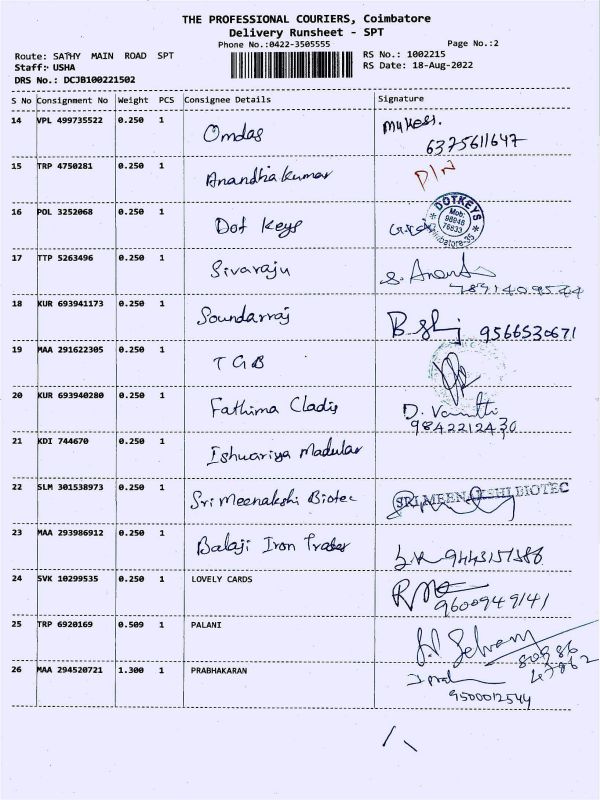 THE PROFESSIONAL COURIERS, Coimbatore
Delivery Runsheet - SPT
Phone No.:0422-3505555
Page No.:2
Route: SATHY MAIN ROAD SPT
RS No.: 1002215
Staff: USHA
RS Date: 18-Aug-2022
DRS No.: DCJB100221502
S No Consignment No Weight PCS Consignee Details Signature
14 VPL 499735522 0.250 1 Omdas Mukesh.
6375611647
15 TRP 4750281 0.250 1 Anandhakumar D/N
16 POL 3252068 0.250 1 Dot Keys
DOTKEYS
Mob:
98946
76833
17 TTP 5263496 0.250 1 Sivaraju S. Anand
18 KUR 693941173 0.250 1 Soundarraj 9566530671
19 MAA 291622305 0.250 1 TGB
20 KUR 693940280 0.250 1 Fathima Cladis D. Vasanthi
9842212430
21 KDI 744670 0.250 1 Ishwariya Madular
22 SLM 301538973 0.250 1 Sri Meenakshi Biotec SRI MEENAKSHI BIOTEC
23 MAA 293986912 0.250 1 Balaji Iron Trades
24 SVK 10299535 0.250 1 LOVELY CARDS
9600949141
25 TRP 6920169 0.509 1 PALANI Selvam
26 MAA 294520721 1.300 1 PRABHAKARAN
9500012544